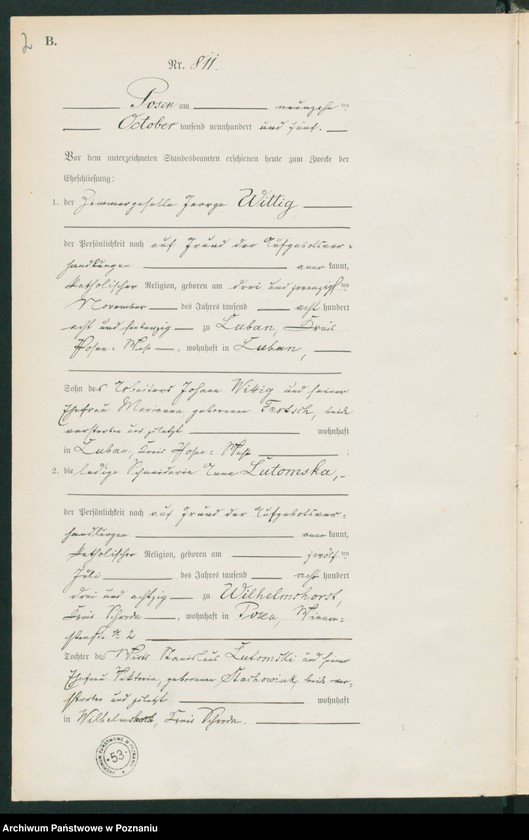 2
B.
Nr. 811.
Posen am neunzehnten
October tausend neunhundert und fünf.
Vor dem unterzeichneten Standesbeamten erschienen heute zum Zwecke der
Eheschließung:
1. der Zimmergeselle George Wittig
der Persönlichkeit nach auf Grund der Aufgebotsver-
handlungen anerkannt,
katholischer Religion, geboren am drei und zwanzigsten
November des Jahres tausend acht hundert
acht und siebenzig zu Luban, Kreis
Posen-West, wohnhaft in Luban,
Sohn des Arbeiters Johann Wittig und seiner
Ehefrau Marianna geborenen beide
verstorben und zuletzt wohnhaft
in Luban, Kreis Posen-West.
2. die ledige Schneiderin Anna Lutomska,
der Persönlichkeit nach auf Grund der Aufgebotsver-
handlungen anerkannt,
katholischer Religion, geboren am zwölften
Juli des Jahres tausend acht hundert
drei und achtzig zu Wilhelmshorst,
Kreis Schroda, wohnhaft in Posen, Wiener-
straße No 2
Tochter des Wirts Stanislaus Lutomski und seiner
Ehefrau Viktoria, geborenen Stachowiak, beide ver-
storben und zuletzt wohnhaft
in Wilhelmshorst, Kreis Schroda.
ARCHIWUM PAŃSTWOWE W POZNANIU
53
Archiwum Państwowe w Poznaniu